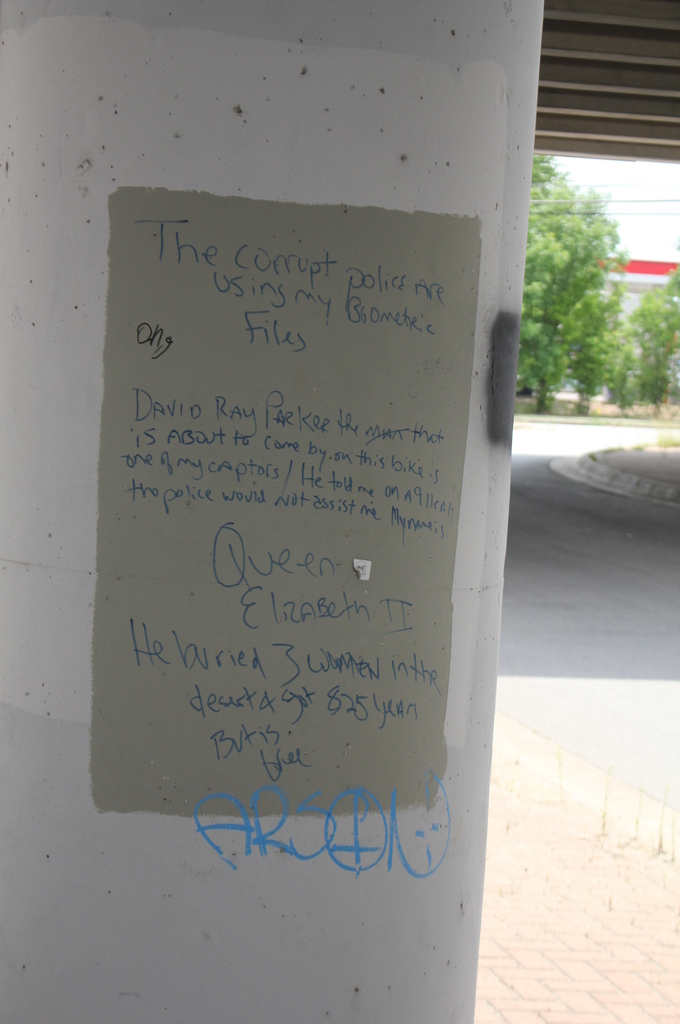 The corrupt police are
using my Biometric
Files
Ong
DAVID RAY Parker the man that
is ABOUT to come by on this bike is
one of my captors / He told me on a 911 call
the police would not assist me My name is
Queen
Elizabeth II
He buried 3 women in the
desert & got 825 years
But is
free
ARSON